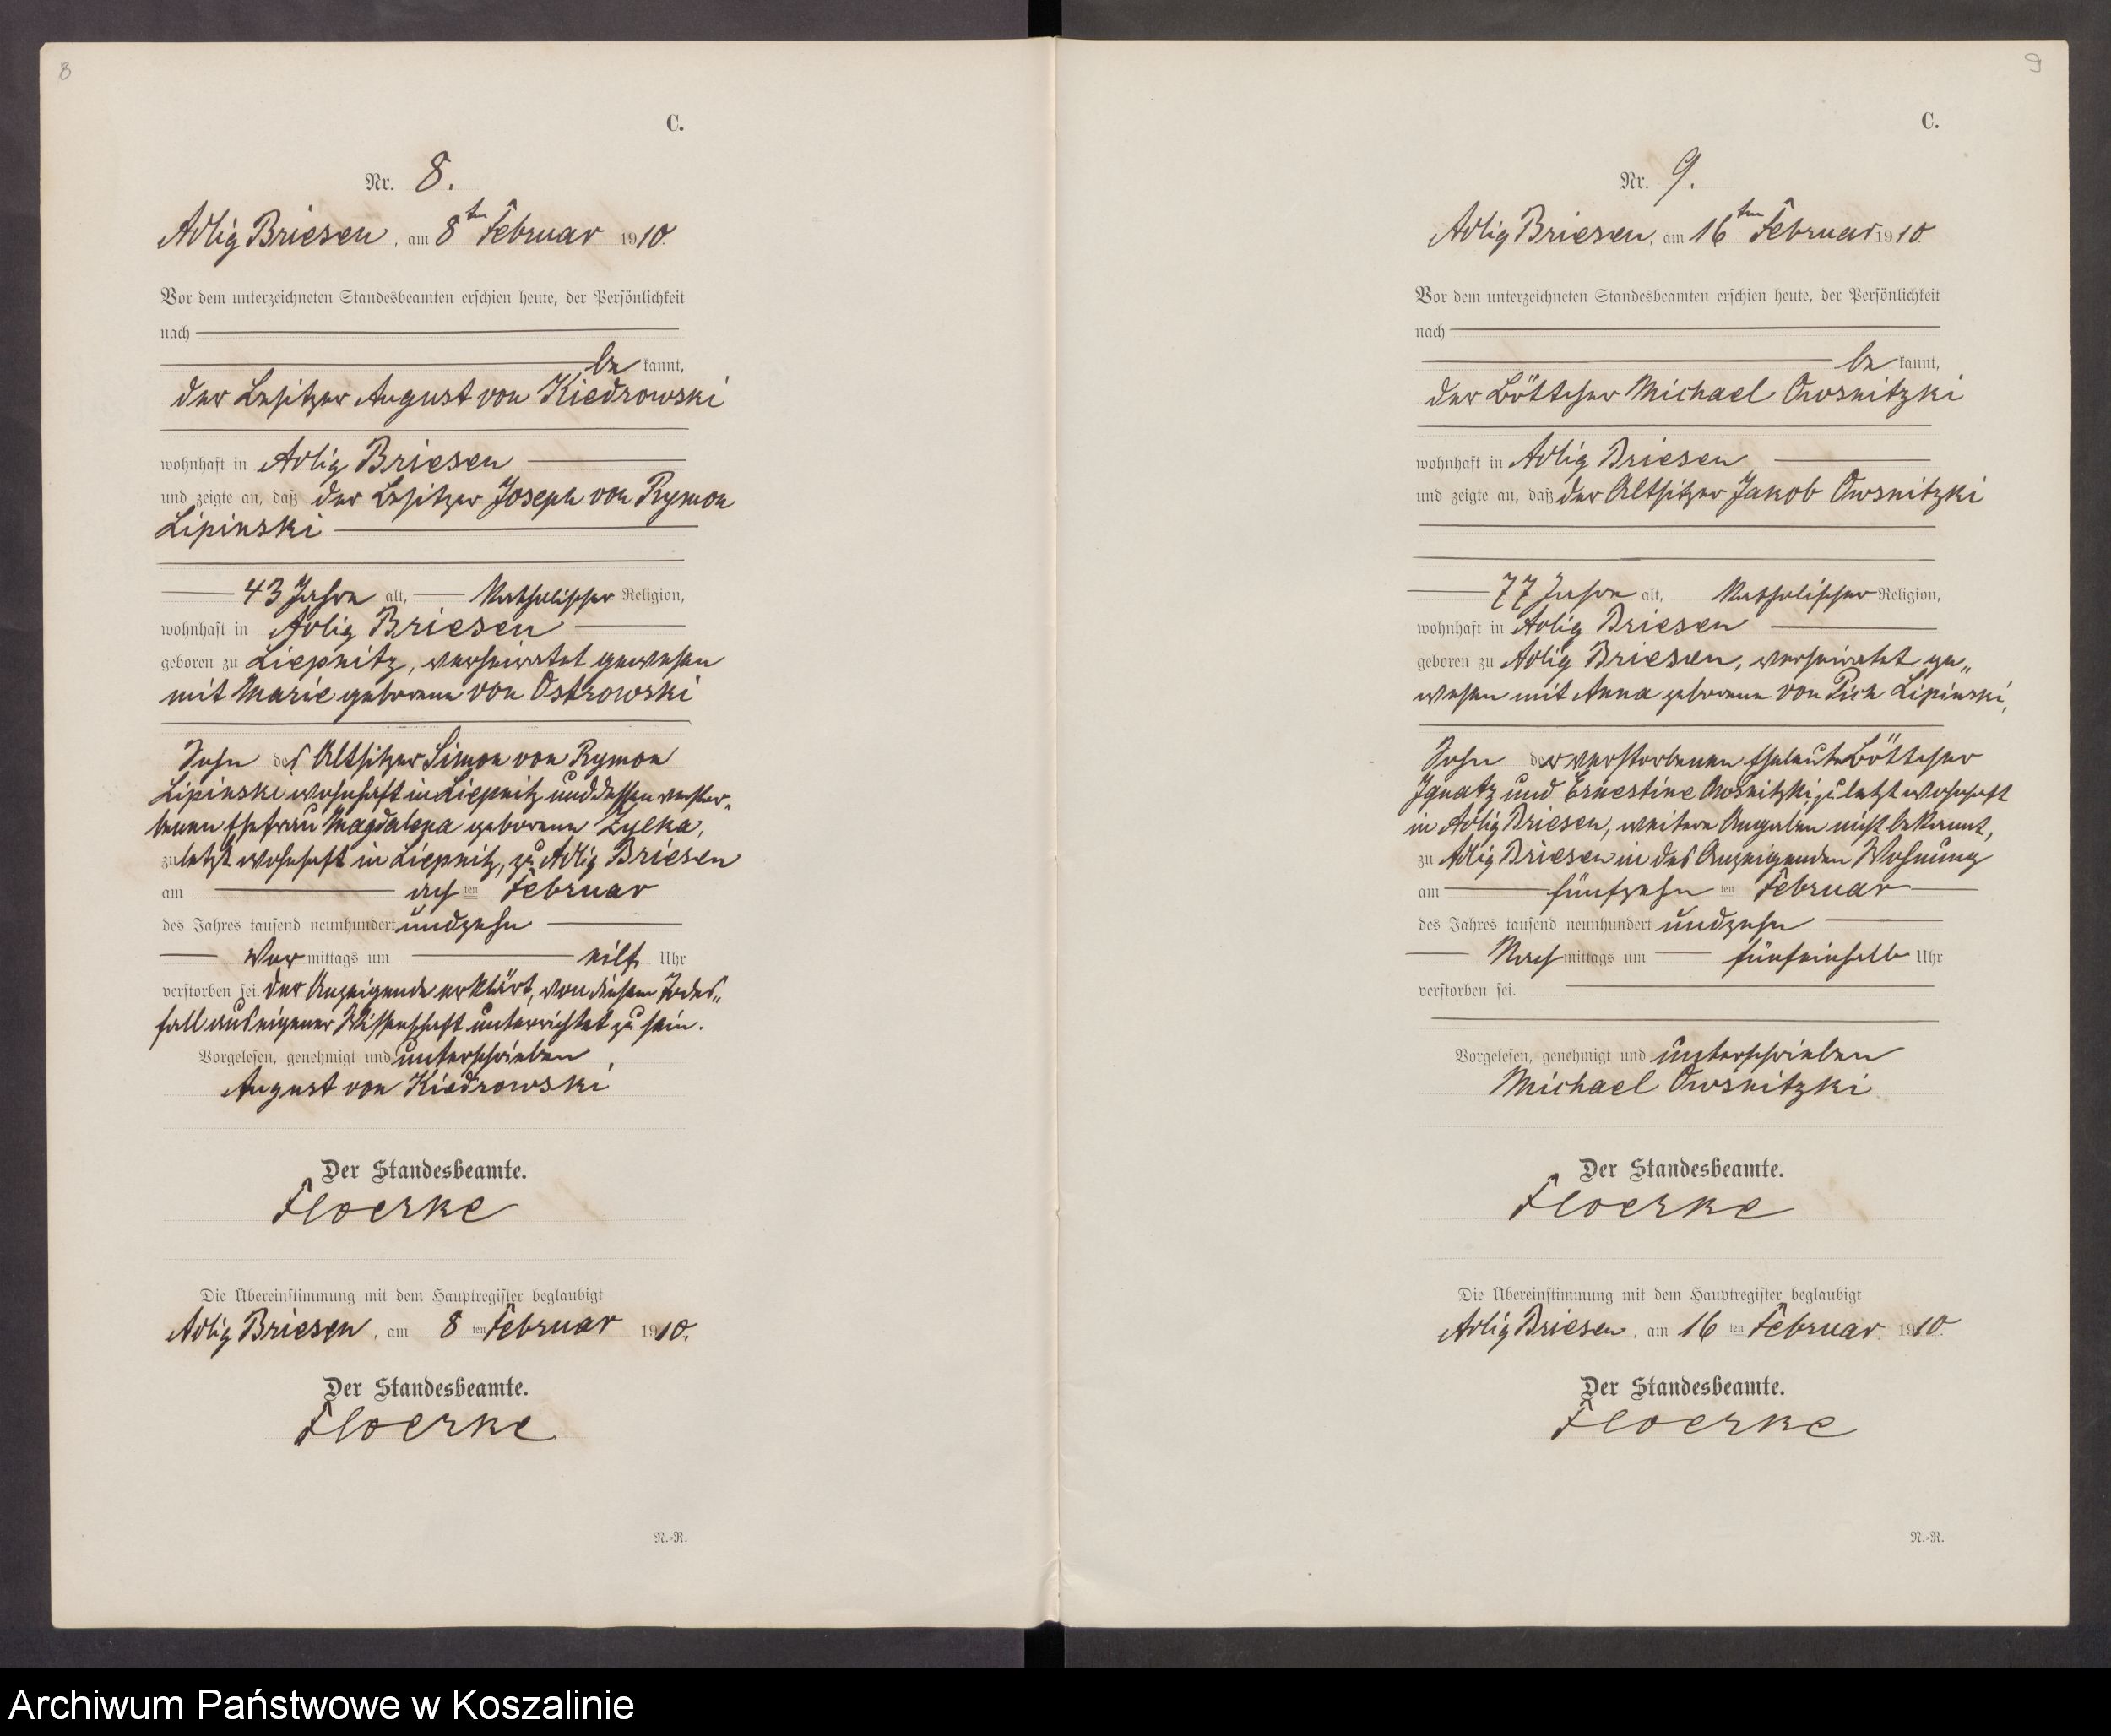 8
C.
Nr. 8.
Adlig Briesen, am 8ten Februar 1910.
Vor dem unterzeichneten Standesbeamten erschien heute, der Persönlichkeit
nach
be kannt,
der Besitzer August von Kiedrowski
wohnhaft in Adlig Briesen
und zeigte an, daß der Besitzer Joseph von Rymon
Lipinski
43 Jahre alt, katholischer Religion,
wohnhaft in Adlig Briesen
geboren zu Liepnitz, verheiratet gewesen
mit Marie geborene von Ostrowski
Sohn des Altsitzer Simon von Rymon
Lipinski wohnhaft in Liepnitz und dessen verstor-
benen Ehefrau Magdalena geborene Zylka,
zuletzt wohnhaft in Liepnitz, zu Adlig Briesen
am acht ten Februar
des Jahres tausend neunhundert undzehn
Vor mittags um elf Uhr
verstorben sei. Der Anzeigende erklärt, von diesem Todes„
fall aus eigener Wissenschaft unterrichtet zu sein.
Vorgelesen, genehmigt und unterschrieben
August von Kiedrowski
Der Standesbeamte.
Floerke
Die Übereinstimmung mit dem Hauptregister beglaubigt
Adlig Briesen, am 8 ten Februar 1910.
Der Standesbeamte.
Floerke
N.-R.
9
C.
Nr. 9.
Adlig Briesen, am 16ten Februar 1910.
Vor dem unterzeichneten Standesbeamten erschien heute, der Persönlichkeit
nach
be kannt,
der Böttcher Michael Owsnitzki
wohnhaft in Adlig Briesen
und zeigte an, daß der Altsitzer Jakob Owsnitzki
77 Jahre alt, katholischer Religion,
wohnhaft in Adlig Briesen
geboren zu Adlig Briesen, verheiratet ge„
wesen mit Anna geborene von Pich Lipinski,
Sohn der verstorbenen Eheleute Böttcher
Ignatz und Ernestine Owsnitzki, zuletzt wohnhaft
in Adlig Briesen, weitere Angaben nicht bekannt,
zu Adlig Briesen in des Anzeigenden Wohnung
am fünfzehn ten Februar
des Jahres tausend neunhundert undzehn
Nach mittags um fünfeinhalb Uhr
verstorben sei.
Vorgelesen, genehmigt und unterschrieben
Michael Owsnitzki
Der Standesbeamte.
Floerke
Die Übereinstimmung mit dem Hauptregister beglaubigt
Adlig Briesen, am 16 ten Februar 1910.
Der Standesbeamte.
Floerke
N.-R.
Archiwum Państwowe w Koszalinie